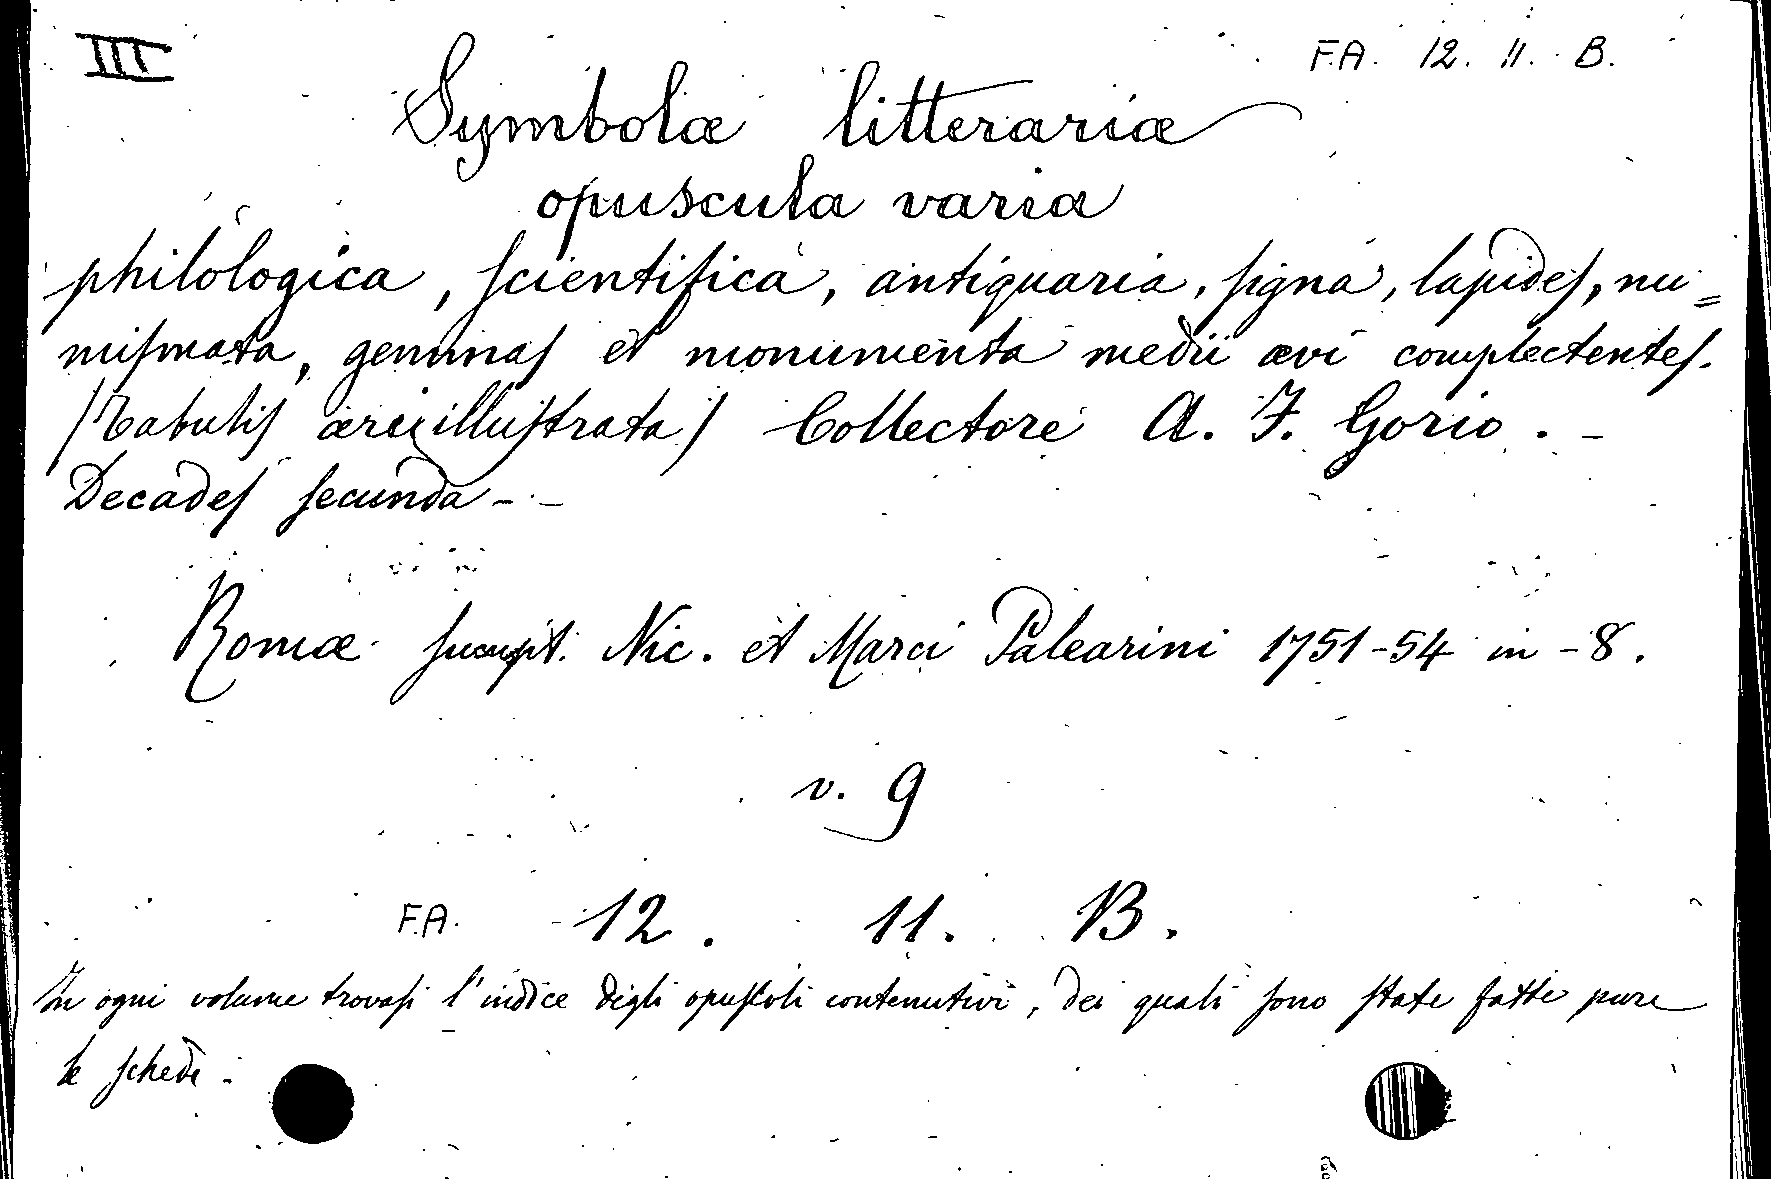 III
F.A. 12. 11. B.
Symbolæ litterariæ
opuscula varia
philologica, scientifica, antiquaria, signa, lapides, nu=
mismata, gemmas et monumenta medii ævi complectentes.
(Tabulis æreis illustrata) Collectore A. F. Gorio. -
Decades secunda - -
Romæ sumpt. Nic. et Marci Palearini 1751-54 in-8.
v. 9
F.A. 12. 11. B.
In ogni volume trovasi l'indice degli opuscoli contenutivi, dei quali sono state fatte pure
le schede.